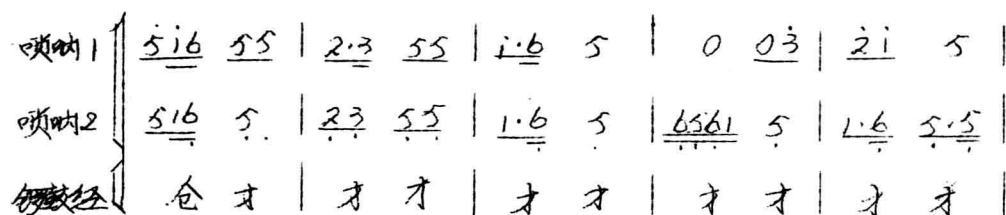 唢呐1 5i6 55 | 2·3 55 | i·6 5 | 0 03̇ | 2̇i 5 |
唢呐2 516 5 | 23 55 | 1·6 5 | 6561 5 | 1·6 5·5 |
锣鼓经 仓 才 | 才 才 | 才 才 | 才 才 | 才 才 |